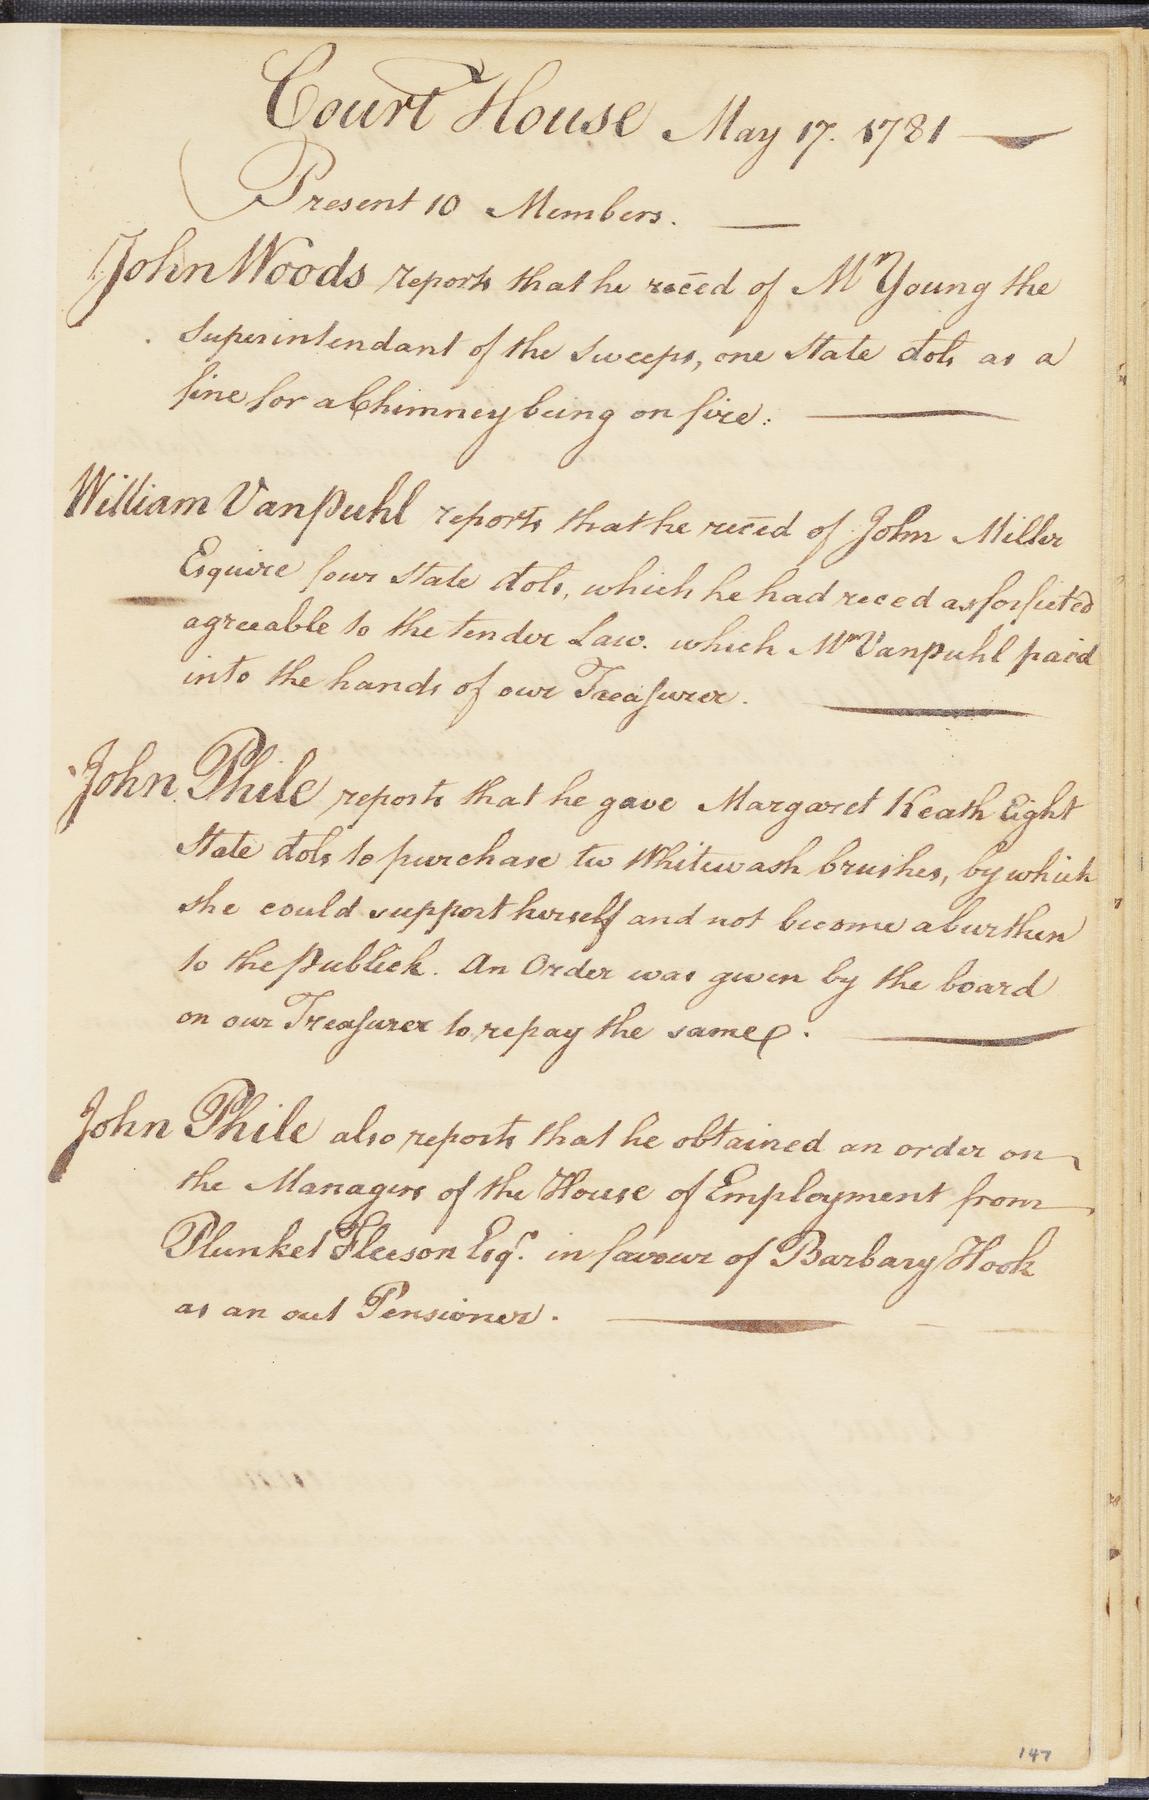 Court House May 17. 1781
Present 10 Members.
John Woods reports that he recēd of Mr Young the
Superintendant of the Sweeps, one State dols as a
fine for a Chimney being on fire.
William Vanpuhl reports that he recēd of John Miller
Esquire four State dols, which he had reced as forfieted
agreeable to the tender Law. which Mr Vanpuhl paid
into the hands of our Treasurer.
John Phile reports that he gave Margaret Keath Eight
State dols to purchase tw Whitewash brushes, by which
she could support herself and not become a burthen
to the publick. An Order was given by the board
on our Treasurer to repay the same.
John Phile also reports that he obtained an order on
the Managers of the House of Employment from
Plunket Fleeson Esqr. in favour of Barbary Hook
as an out Pensioner.
147